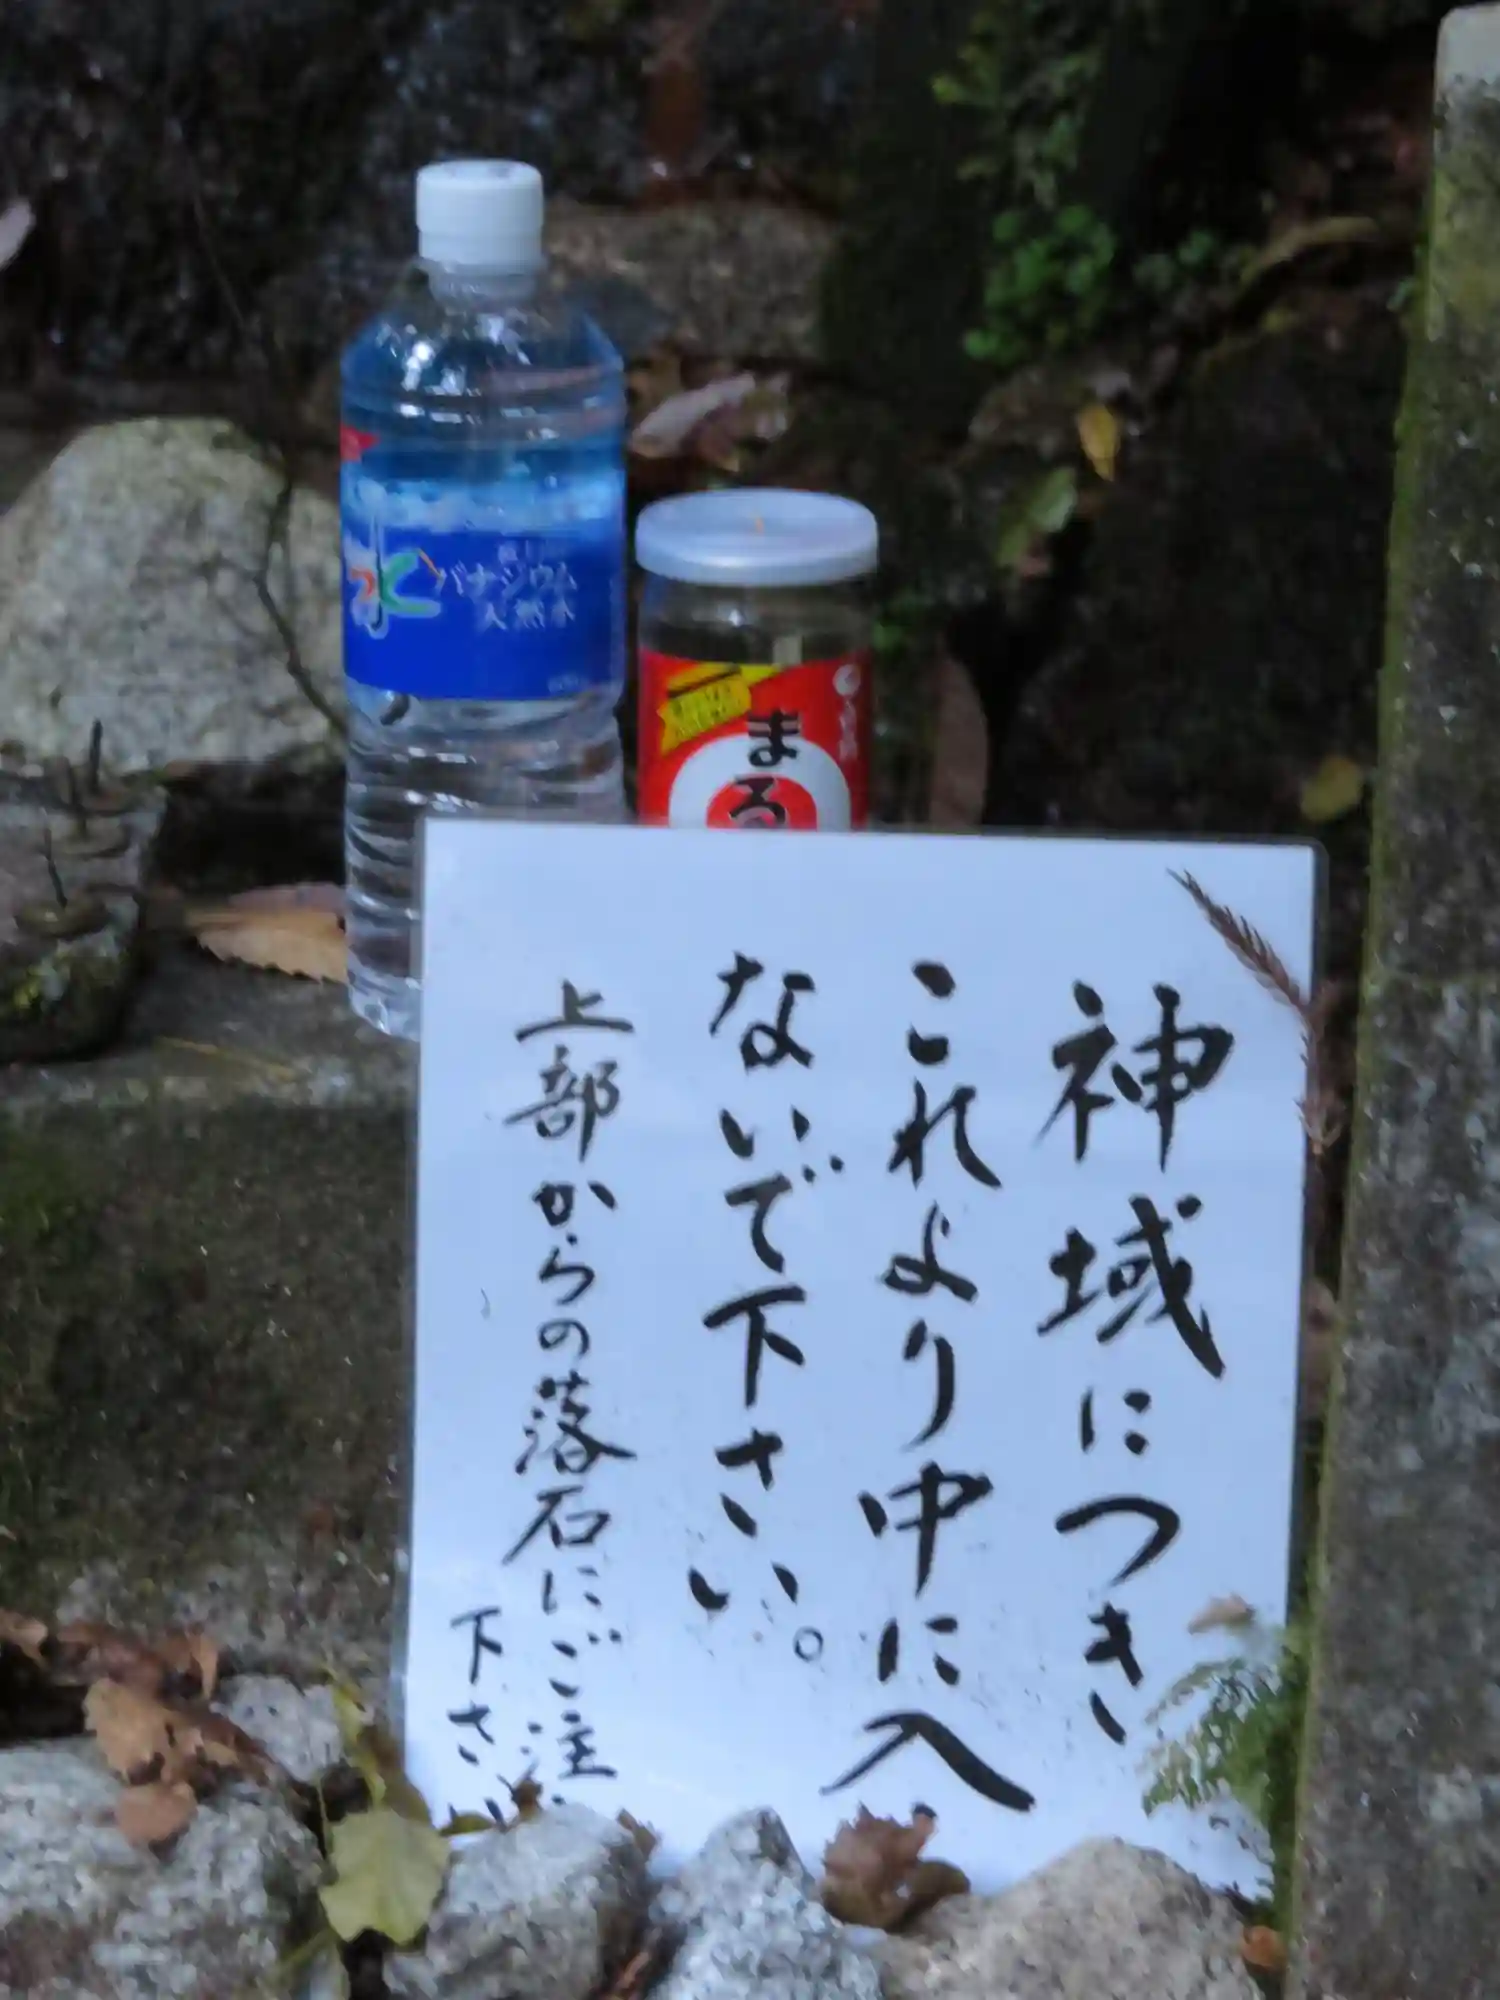 バナジウム
天然水
まる
神域につき
これより中に入
ないで下さい。
上部からの落石にご注
下さい